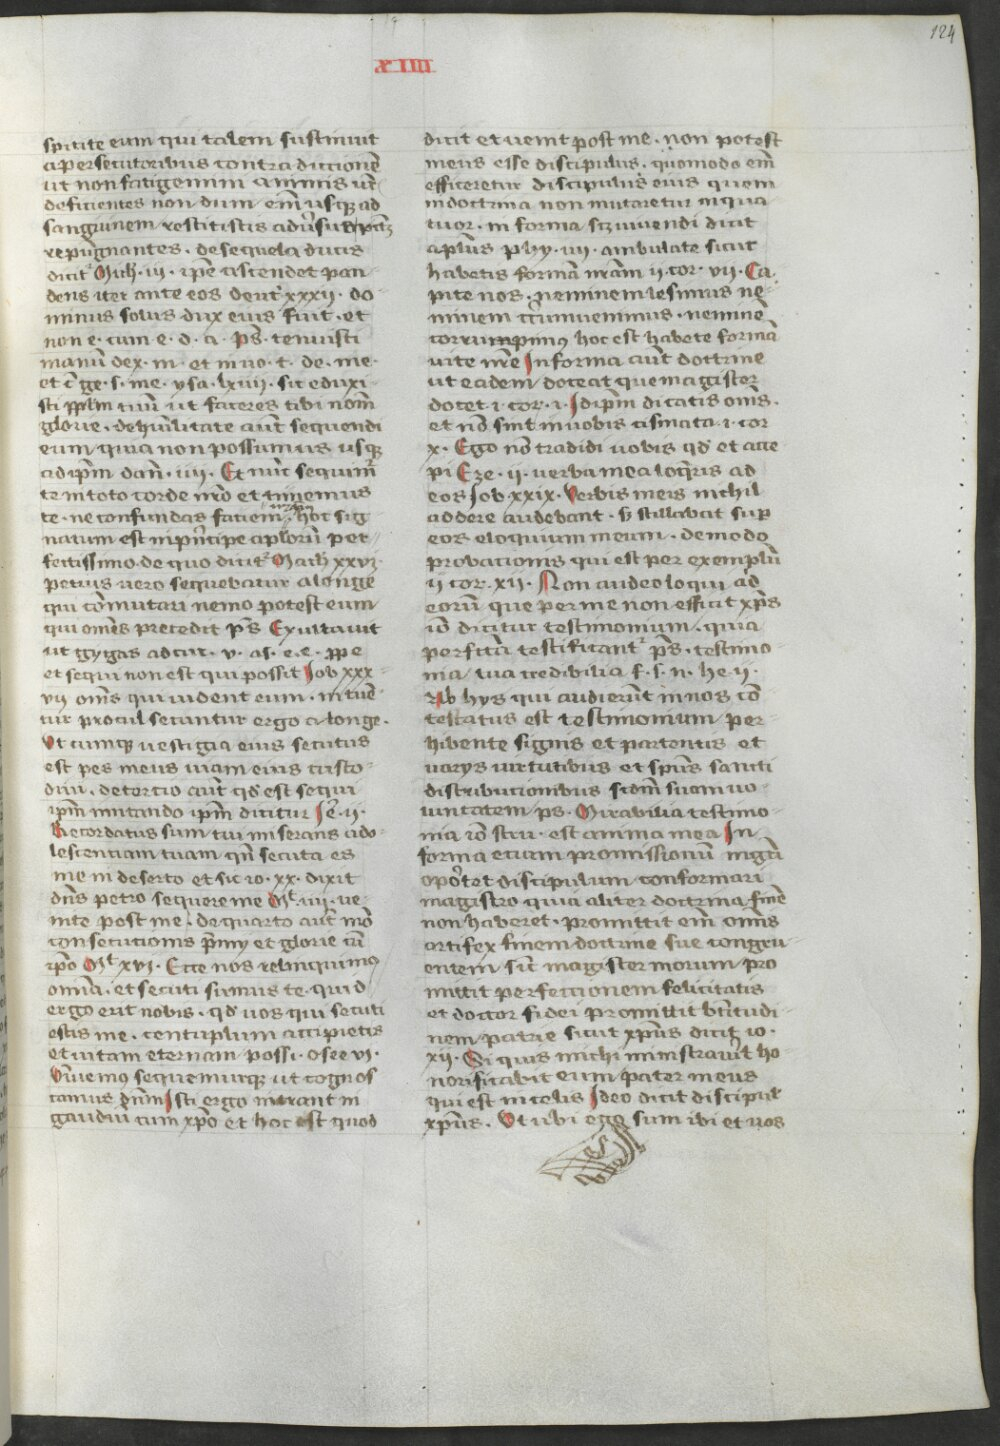 124
XIIII
spicite eum qui talem sustinuit
a persecutoribus contradictionē
ut non fatigemini animis ur̄is
deficientes non dum em̄ usqꝫ ad
sanguinem restitistis adūsus pctm̄
repugnantes. de sequela ducis
dicitᷣ Mich. ii. ipse ascendet pan
dens iter ante eos deut xxxii. do
minus solus dux eius fuit. et
non e. cum e. d. a. ps. tenuisti
manū dex. m. et in uo. t. de. me.
et c̄ ge. s. me. ysa. lxiii. sic eduxi
sti pplm tuū ut faceres tibi nom̄
glorie. de humilitate aut̄ sequendi
eum quia non possumus usqꝫ
ad ip̄m dan̄. iii. Et nūc sequimᷣ
te in toto corde nr̄o et timemus
te. ne confundas faciem nr̄am hoc sig
natum est in pn̄cipe aplorū per
fectissimo de quo dicitᷣ Math xxvi.
petrus uero sequebatur a longe
qui cōmutari nemo potest eum
qui omēs precedit ps Exultauit
ut gygas ad cur. v. a s. e. e. ppe
et sequi non est qui possit Iob xxx
vii omēs qui uident eum. intuē
tur procul secuntur ergo a longe.
Ut cumqꝫ uestigia eius secutus
est pes meus uiam eius custo
diui. de tercio aut̄ qd̄ est sequi
ip̄m imitando ip̄m dicitur Ie. ii.
Recordatus sum tui miserans ado
lescentiam tuam qn̄ secuta es
me in deserto et sic io. xx. dixit
dn̄s petro sequere me Mt. iiii. ue
nite post me. de quarto aut̄ mō
consecutionis p̄mij et glorie cū
xpo Mt xvi. Ecce nos relinquimꝰ
omīa. et secuti sumus te. quid
ergo erit nobis. qd̄ uos qui secuti
estis me. centuplum accipietis
et uitam eternam possi. osee vi.
Uiuemꝰ sequemurqꝫ ut cognos
camus dn̄m Isti ergo intrant in
gaudiū cum xpo et hoc est quod
dicit et uenit post me. non potest
meus esse discipulus. quomodo em̄
efficeretur discipulus eius quem
in doctrina non imitaretur in qua
tuor. in forma sc; uiuendi dicit
aplus phy. iii. ambulate sicut
habetis formā nr̄am ii cor. vii. Ca
pite nos. neminem lesimus ne
minem circumuenimus. neminē
corrumpimus hoc est habete formā
uite nr̄e In forma aut̄ doctrine
ut eadem doceat que magister
docet i. cor. i. Idip̄m dicatis omēs.
et nō sint in uobis scismata. i. cor
x. Ego nō tradidi uobis qd̄ et acce
pi Eze. ii. uerba mea loqris ad
eos Iob xxix. Verbis meis nichil
addere audebant. s; stillabat sup
eos eloquium meum. de modo
probacionis qui est per exemplū
ii cor. xii. Non audeo loqui ad
eorū que per me non efficit xp̄s
iō dicitur testimonium. quia
perfectū testificantᷣ ps. testimo
nia tua credibilia f. s. n. he. ii.
Ab hys qui audierūt in nos cō
testatus est testimonium per
hibente signis et portentis et
uarys uirtutibus et spūs sancti
distribucionibus scdm suam uo
luntatem ps. Mirabilia testimo
nia iō scru. est anima mea In
forma eciam promissionū
oportet discipulum conformari
magistro quia aliter doctrina finē
non haberet. promittit em̄ omīs
artifex finem doctrine sue congru
entem sic̄ magister morum pro
mittit perfectionem felicitatis
et doctor fidei promittit btitudi
nem patrie sicut xpūs dicit io.
xii. Si quis michi ministrauit ho
norificabit eum pater meus
qui est in celis Ideo dicit discipulis
xpūs. Ut ubi ego sum ibi et uos